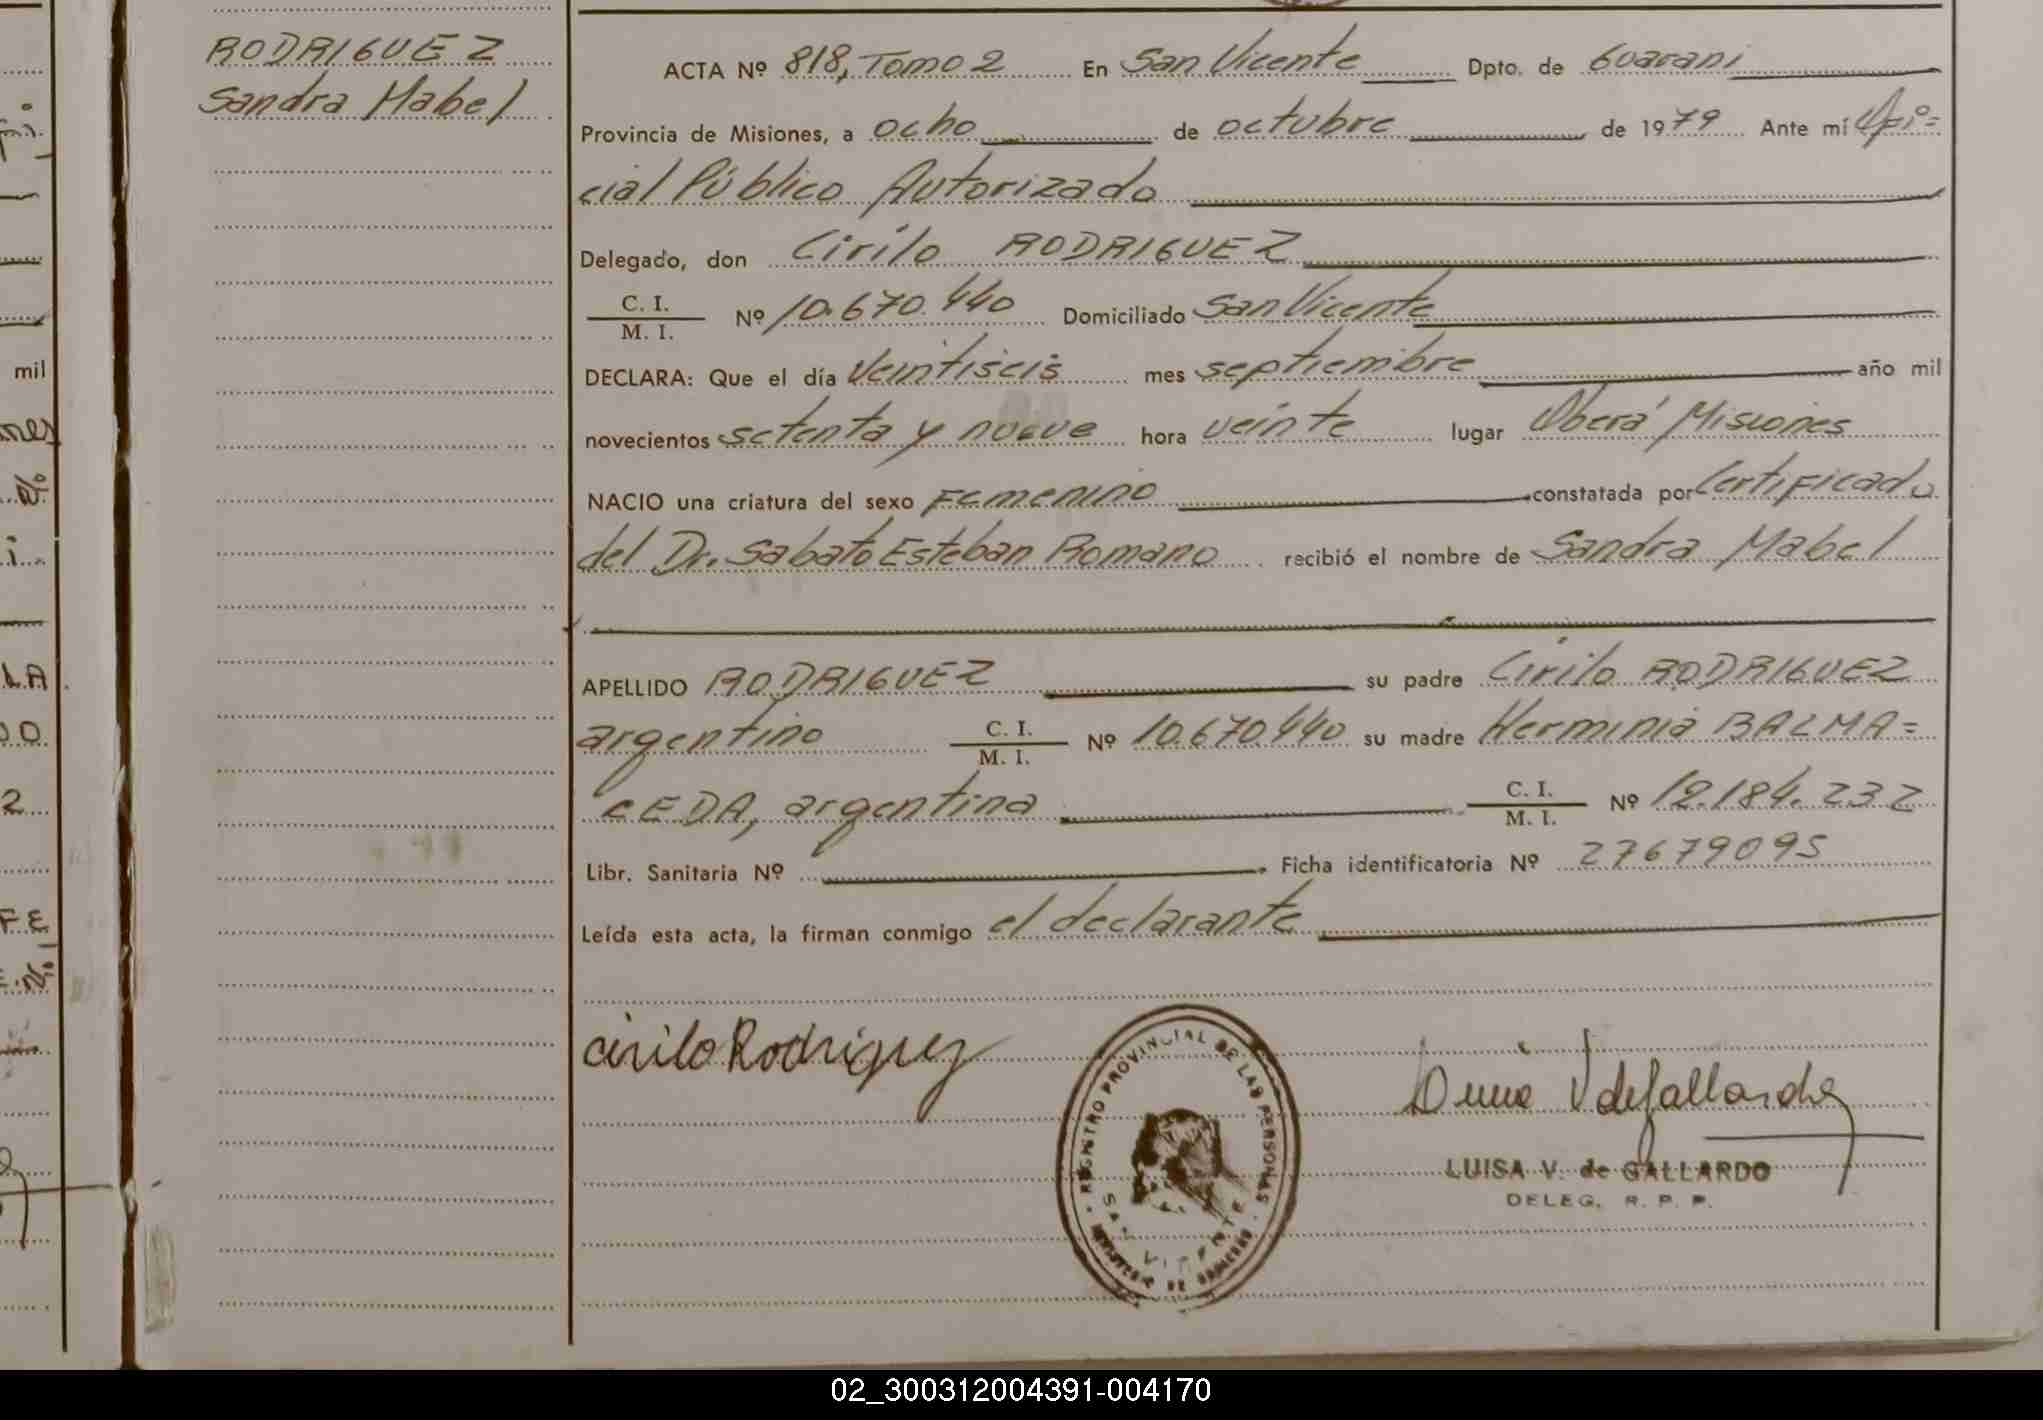 RODRIGUEZ
Sandra Mabel
ACTA Nº 818, Tomo 2 En San Vicente Dpto. de Guarani
Provincia de Misiones, a ocho de octubre de 1979 Ante mí Ofi=
cial Público Autorizado
Delegado, don Cirilo RODRIGUEZ
C. I.
M. I.
Nº 10.670.440 Domiciliado San Vicente
DECLARA: Que el día veintiseis mes septiembre año mil
novecientos setenta y nueve hora veinte lugar Oberá Misiones
NACIO una criatura del sexo Femenino constatada por Certificado
del Dr. Sabato Esteban Romano recibió el nombre de Sandra Mabel
APELLIDO RODRIGUEZ su padre Cirilo RODRIGUEZ
argentino C. I. M. I. Nº 10.670.440 su madre Herminia BALMA=
CEDA, argentina C. I. M. I. Nº 12.184.232
Libr. Sanitaria Nº Ficha identificatoria Nº 27679095
Leída esta acta, la firman conmigo el declarante
cirilo Rodriguez
REGISTRO PROVINCIAL DE LAS PERSONAS
SAN VICENTE
MINISTERIO DE GOBIERNO
V de Gallardo
LUISA V. de GALLARDO
DELEG. R. P. P.
mil
LA
2
FE
02_300312004391-004170